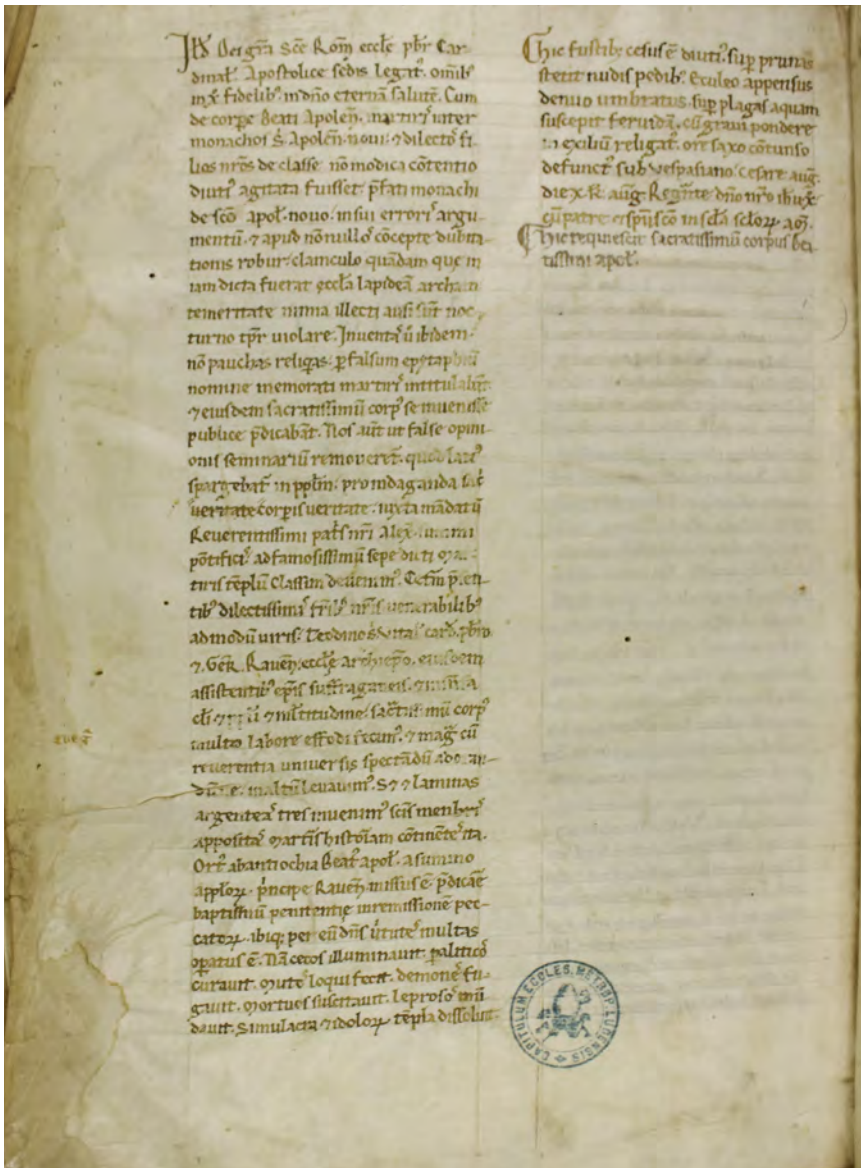 Ild Dei gr̃a Sc̃e Rom̃ eccłe p̃br Car
dinal᷒ Apostolice sedis legat᷒ om̃ib᷒
in xp̃ fidelib᷒ in dñO eternã salutẽ. Cum
de corpe Beati Apolen᷒ martiri᷒ inter
monachos S̃ Apolen᷒ noui ⁊ dilecto᷒ fi
lios nr̃os de classe nõ modica cõtentio
diuti᷒ agitata fuisset p̃fati monachi
de sc̃o apol᷒ nouo in sui errori᷒ argu-
mentũ ⁊ apud nõnullo᷒ cõcepte dubita-
tionis robur clamculo quãdam que in
iam dicta fuerat eccl̃a lapideã archam
temeritate nimia illecti ausi sũt noc-
turno tp̃r uiolare. Inuenta᷒ ũ ibidem
nõ pauchas reliq̃as p̃ falsum epytaphiũ
nomine memorati martiri᷒ intitulabãt
⁊ eiusdem sacratissimũ corp᷒ se inuenisse
publice p̃dicabãt. Nos aũt ut false opini
onis seminariũ remoueret̃ quod lati᷒
spargebat᷒ in pp̃lm pro indaganda
ueritate corpis ueritate iuxta mãdatũ
Reuerentissimi pat̃s nr̃i Alex᷒ summi
põtifici᷒ ad famosissimũ sepe dicti mar
tiris tẽplũ Classim deuenim᷒. Cetm̃ p̃sen-
tib᷒ dilectissimi᷒ fr̃ib᷒ nr̃is uenerabilib᷒
admodũ uiris. Teodino S̃ Vital᷒ card᷒ p̃bro
⁊ Ger᷒ Rauen̄ eccłe archiep̃o. eiusdem
assistentib᷒ ep̃is suffraganeis
cl̃i ⁊ ⁊ multitudine sac̃tissimũ corp᷒
multo labore effodi fecim᷒ ⁊ mag᷒ cũ
reuerentia uniuersis spectãdũ ado-
in altũ leuauim᷒. S⁊ ⁊ laminas
argentea᷒ tres inuenim᷒ sc̃is menbri᷒
apposita᷒ mart̃is histoĩam cõtinẽte᷒ ita.
Ort᷒ ab antiochia Beat᷒ apol᷒ a summo
ap̃plorꝝ p̃ncipe Rauen̄ missus ẽ p̃dicaẽ
baptismũ penitentie in remissionẽ pec-
catorꝝ ibiq; per eũ dñs ũtute᷒ multas
opatus ẽ. Nã cecos illuminauit. paliticos᷒
curauit. mute᷒ loqui fecit. demone᷒ fu-
gauit. mortuos suscitauit. leproso᷒ mũ
dauit. simulacra ⁊ idolorꝝ tẽpla dissoluit.
Hic fustib᷒ cesus ẽ diuti᷒. sup prunas
stetit nudis pedib᷒. Eculeo appensus
denuo umbratus. sup plagas aquam
suscepit feruidã. cũ graui pondere
in exiliũ religat᷒. ore saxo cõtunso
defunct᷒ sub uespasiano cesare aug᷒
die x. k̃ aug᷒. Regñte dño nr̃o ih̃u xp̃
cũ patre ⁊ sp̃u sc̃o in sc̃la sclorꝝ am̃.
Hic requiescit sacratissimũ corpus bea
tissimi apol᷒.
CAPITULUM ECCLES. METROP. LUDENSIS